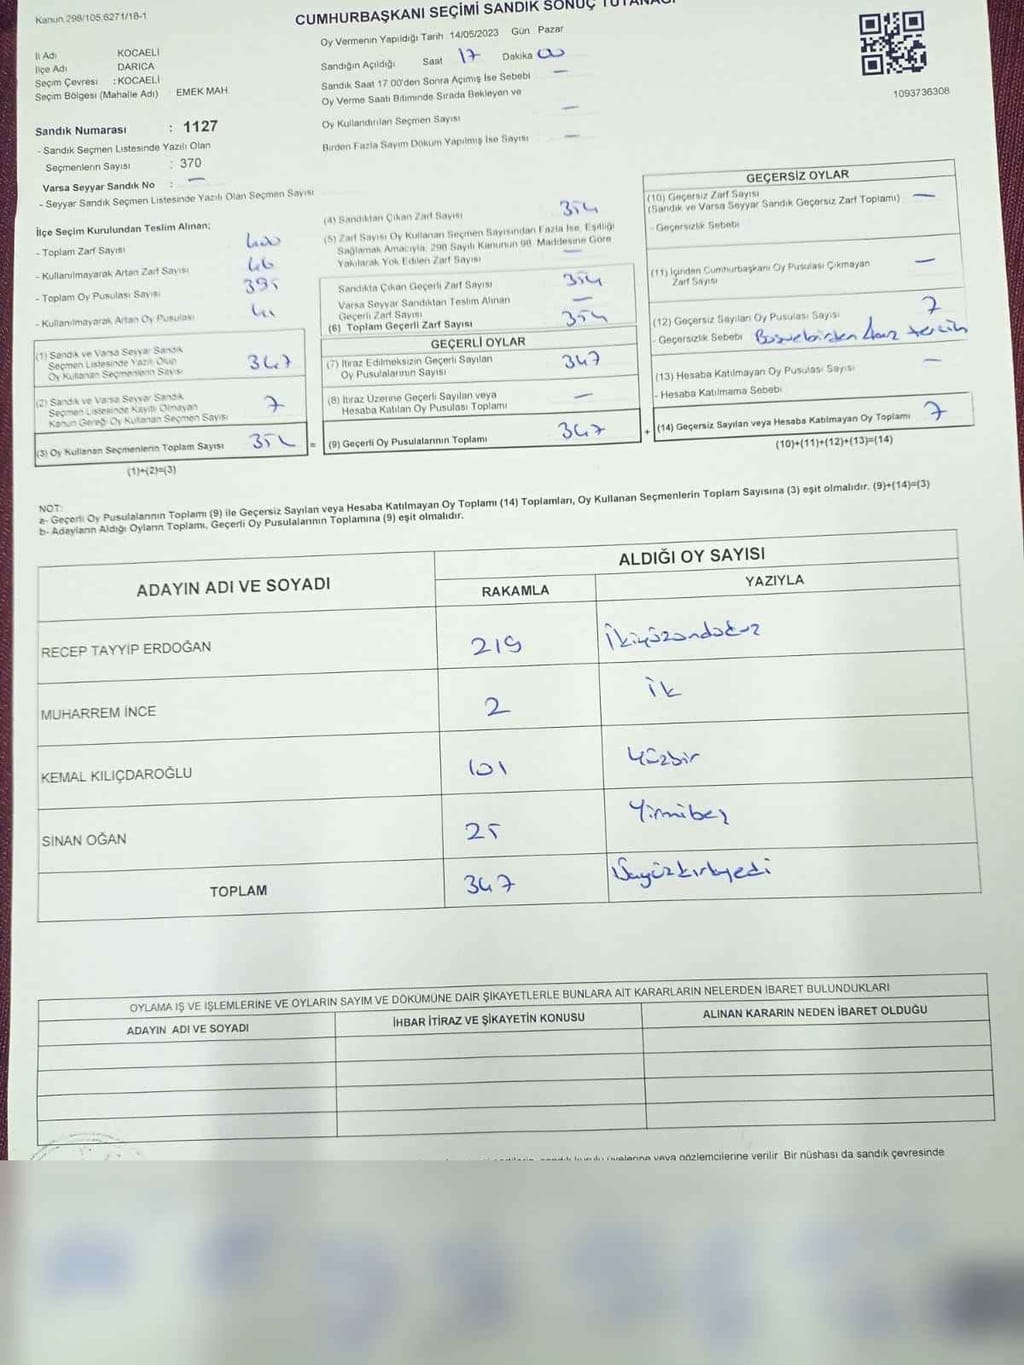 Kanun 298/105,6271/18-1
CUMHURBAŞKANI SEÇİMİ SANDIK SONUÇ TUTANAĞI
İl Adı KOCAELİ
İlçe Adı DARICA
Seçim Çevresi : KOCAELİ
Seçim Bölgesi (Mahalle Adı) EMEK MAH.
Sandık Numarası : 1127
- Sandık Seçmen Listesinde Yazılı Olan
Seçmenlerin Sayısı : 370
Varsa Seyyar Sandık No : —
- Seyyar Sandık Seçmen Listesinde Yazılı Olan Seçmen Sayısı
Oy Vermenin Yapıldığı Tarih 14/05/2023 Gün Pazar
Sandığın Açıldığı Saat 17 Dakika 00
Sandık Saat 17 00'den Sonra Açımış İse Sebebi —
Oy Verme Saati Bitiminde Sırada Bekleyen ve
Oy Kullandırılan Seçmen Sayısı —
Birden Fazla Sayım Döküm Yapılmış İse Sayısı —
1093736308
İlçe Seçim Kurulundan Teslim Alınan;
- Toplam Zarf Sayısı 400
- Kullanılmayarak Artan Zarf Sayısı 46
- Toplam Oy Pusulası Sayısı 395
- Kullanılmayarak Artan Oy Pusulası 41
(1) Sandık ve Varsa Seyyar Sandık
Seçmen Listesinde Yazılı Olup
Oy Kullanan Seçmenlerin Sayısı 347
(2) Sandık ve Varsa Seyyar Sandık
Seçmen Listesinde Kayıtlı Olmayan
Kanun Gereği Oy Kullanan Seçmen Sayısı 7
(3) Oy Kullanan Seçmenlerin Toplam Sayısı 354 =
(1)+(2)=(3)
(4) Sandıktan Çıkan Zarf Sayısı 354
(5) Zarf Sayısı Oy Kullanan Seçmen Sayısından Fazla İse, Eşitliği
Sağlamak Amacıyla, 298 Sayılı Kanunun 98. Maddesine Göre
Yakılarak Yok Edilen Zarf Sayısı —
Sandıkta Çıkan Geçerli Zarf Sayısı 354
Varsa Seyyar Sandıktan Teslim Alınan
Geçerli Zarf Sayısı —
(6) Toplam Geçerli Zarf Sayısı 354
GEÇERLİ OYLAR
(7) İtiraz Edilmeksizin Geçerli Sayılan
Oy Pusulalarının Sayısı 347
(8) İtiraz Üzerine Geçerli Sayılan veya
Hesaba Katılan Oy Pusulası Toplamı —
(9) Geçerli Oy Pusulalarının Toplamı 347 +
GEÇERSİZ OYLAR
(10) Geçersiz Zarf Sayısı
(Sandık ve Varsa Seyyar Sandık Geçersiz Zarf Toplamı) —
- Geçersizlik Sebebi
(11) İçinden Cumhurbaşkanı Oy Pusulası Çıkmayan
Zarf Sayısı —
(12) Geçersiz Sayılan Oy Pusulası Sayısı 7
- Geçersizlik Sebebi Boş ve birden tercih
(13) Hesaba Katılmayan Oy Pusulası Sayısı —
- Hesaba Katılmama Sebebi
(14) Geçersiz Sayılan veya Hesaba Katılmayan Oy Toplamı 7
(10)+(11)+(12)+(13)=(14)
NOT:
a- Geçerli Oy Pusulalarının Toplamı (9) ile Geçersiz Sayılan veya Hesaba Katılmayan Oy Toplamı (14) Toplamları, Oy Kullanan Seçmenlerin Toplam Sayısına (3) eşit olmalıdır. (9)+(14)=(3)
b- Adayların Aldığı Oyların Toplamı, Geçerli Oy Pusulalarının Toplamına (9) eşit olmalıdır.
ADAYIN ADI VE SOYADI
ALDIĞI OY SAYISI
RAKAMLA YAZIYLA
RECEP TAYYİP ERDOĞAN 219 İkiyüzondokuz
MUHARREM İNCE 2 İk
KEMAL KILIÇDAROĞLU 101 Yüzbir
SİNAN OĞAN 25 Yirmibeş
TOPLAM 347 Üçyüzkırkyedi
OYLAMA İŞ VE İŞLEMLERİNE VE OYLARIN SAYIM VE DÖKÜMÜNE DAİR ŞİKAYETLERLE BUNLARA AİT KARARLARIN NELERDEN İBARET BULUNDUKLARI
ADAYIN ADI VE SOYADI İHBAR İTİRAZ VE ŞİKAYETİN KONUSU ALINAN KARARIN NEDEN İBARET OLDUĞU
sandık kurulu üyelerine veya gözlemcilerine verilir Bir nüshası da sandık çevresinde